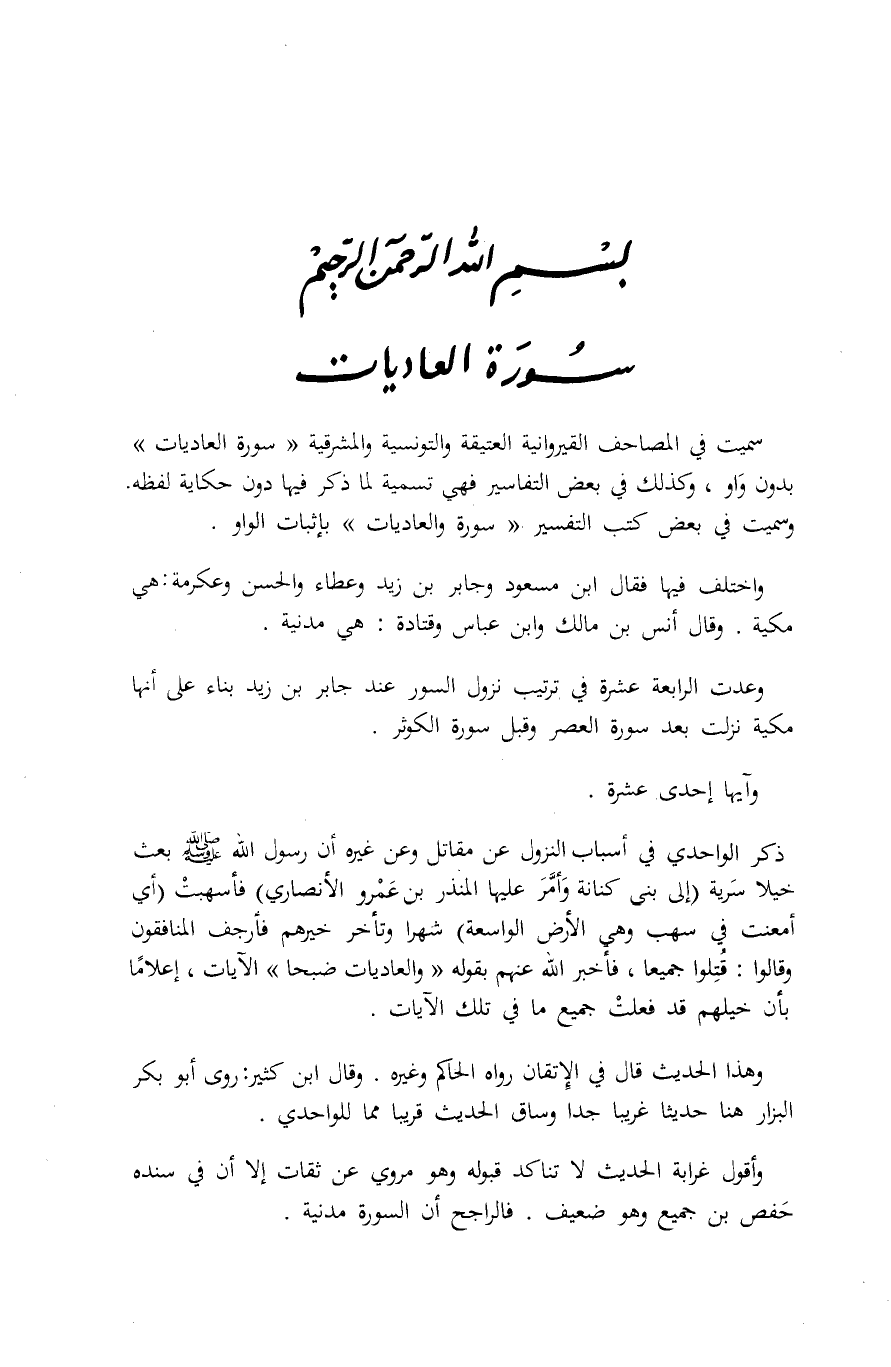 بسم الله الرحمن الرحيم
سورة العاديات
سميت في المصاحف القيروانية العتيقة والتونسية والمشرقية « سورة العاديات »
بدون وَاو ، وكذلك في بعض التفاسير فهي تسمية لما ذكر فيها دون حكاية لفظه.
وسميت في بعض كتب التفسير « سورة والعاديات » بإثبات الواو .
واختلف فيها فقال ابن مسعود وجابر بن زيد وعطاء والحسن وعكرمة: هي
مكية . وقال أنس بن مالك وابن عباس وقتادة : هي مدنية .
وعدت الرابعة عشرة في ترتيب نزول السور عند جابر بن زيد بناء على أنها
مكية نزلت بعد سورة العصر وقبل سورة الكوثر .
وآيها إحدى عشرة .
ذكر الواحدي في أسباب النزول عن مقاتل وعن غيره أن رسول الله ﷺ بعث
خيلا سَرية (إلى بنى كنانة وَأمَّرَ عليها المنذر بن عَمْرو الأنصاري) فأسهبتْ (أي
أمعنت في سهب وهي الأرض الواسعة) شهرا وتأخر خيرهم فأرجف المنافقون
وقالوا : قُتِلوا جميعا ، فأخبر الله عنهم بقوله « والعاديات ضبحا » الآيات ، إعلامًا
بأن خيلهم قد فعلتْ جميع ما في تلك الآيات .
وهذا الحديث قال في الإتقان رواه الحاكم وغيره . وقال ابن كثير: روى أبو بكر
البزار هنا حديثا غريبا جدا وساق الحديث قريبا مما للواحدي .
وأقول غرابة الحديث لا تناكد قبوله وهو مروي عن ثقات إلا أن في سنده
حَفص بن جميع وهو ضعيف . فالراجح أن السورة مدنية .